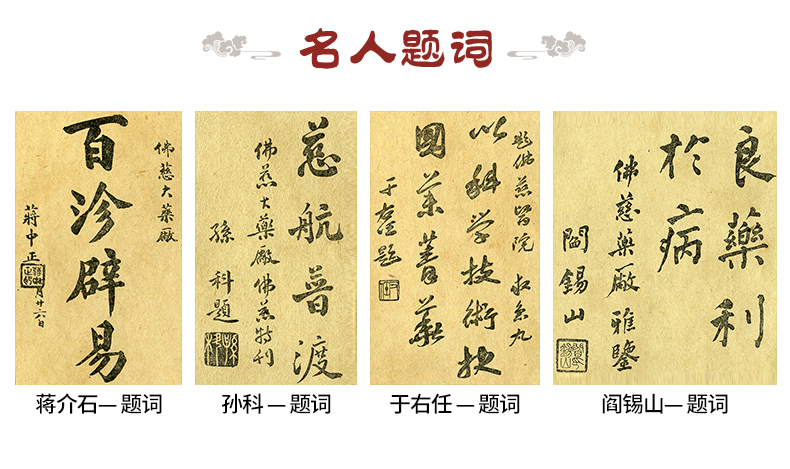 名人题词
佛慈大藥廠
百沴辟易
蔣中正
月廿六日
慈航普渡
佛慈大藥廠佛慈特刊
孫科題
以科學技術抉
國藥菁華
于右任題
良藥利
於病
佛慈藥廠雅鑒
閻錫山
蒋介石— 题词
孙科 — 题词
于右任 — 题词
阎锡山— 题词